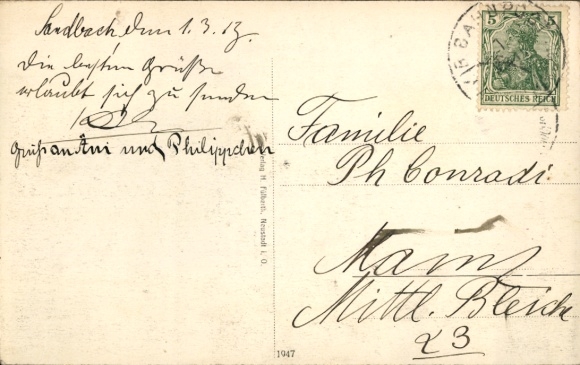 Sandbach den 1.3.13.
Die besten Grüße
erlaubt sich zu senden
Gruß an Äni und Philippchen
Verlag H. Fülberth, Neustadt i. O.
1947
5 5
DEUTSCHES REICH
BAHNPOST
Familie
Ph Conradi
Mainz
Mittl. Bleiche
23